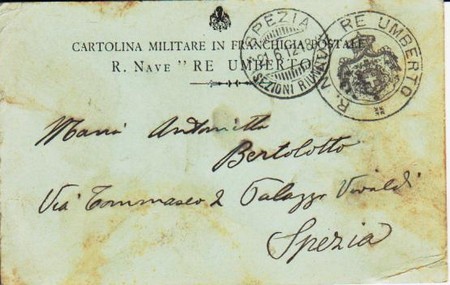 CARTOLINA MILITARE IN FRANCHIGIA POSTALE
R. NAVE " RE UMBERTO
SPEZIA
SEZIONI RIUNITE
R. NAVE RE UMBERTO
Maria Antonietta
Bertolotto
Via Tommaseo 2 Palazzo Vivaldi
Spezia